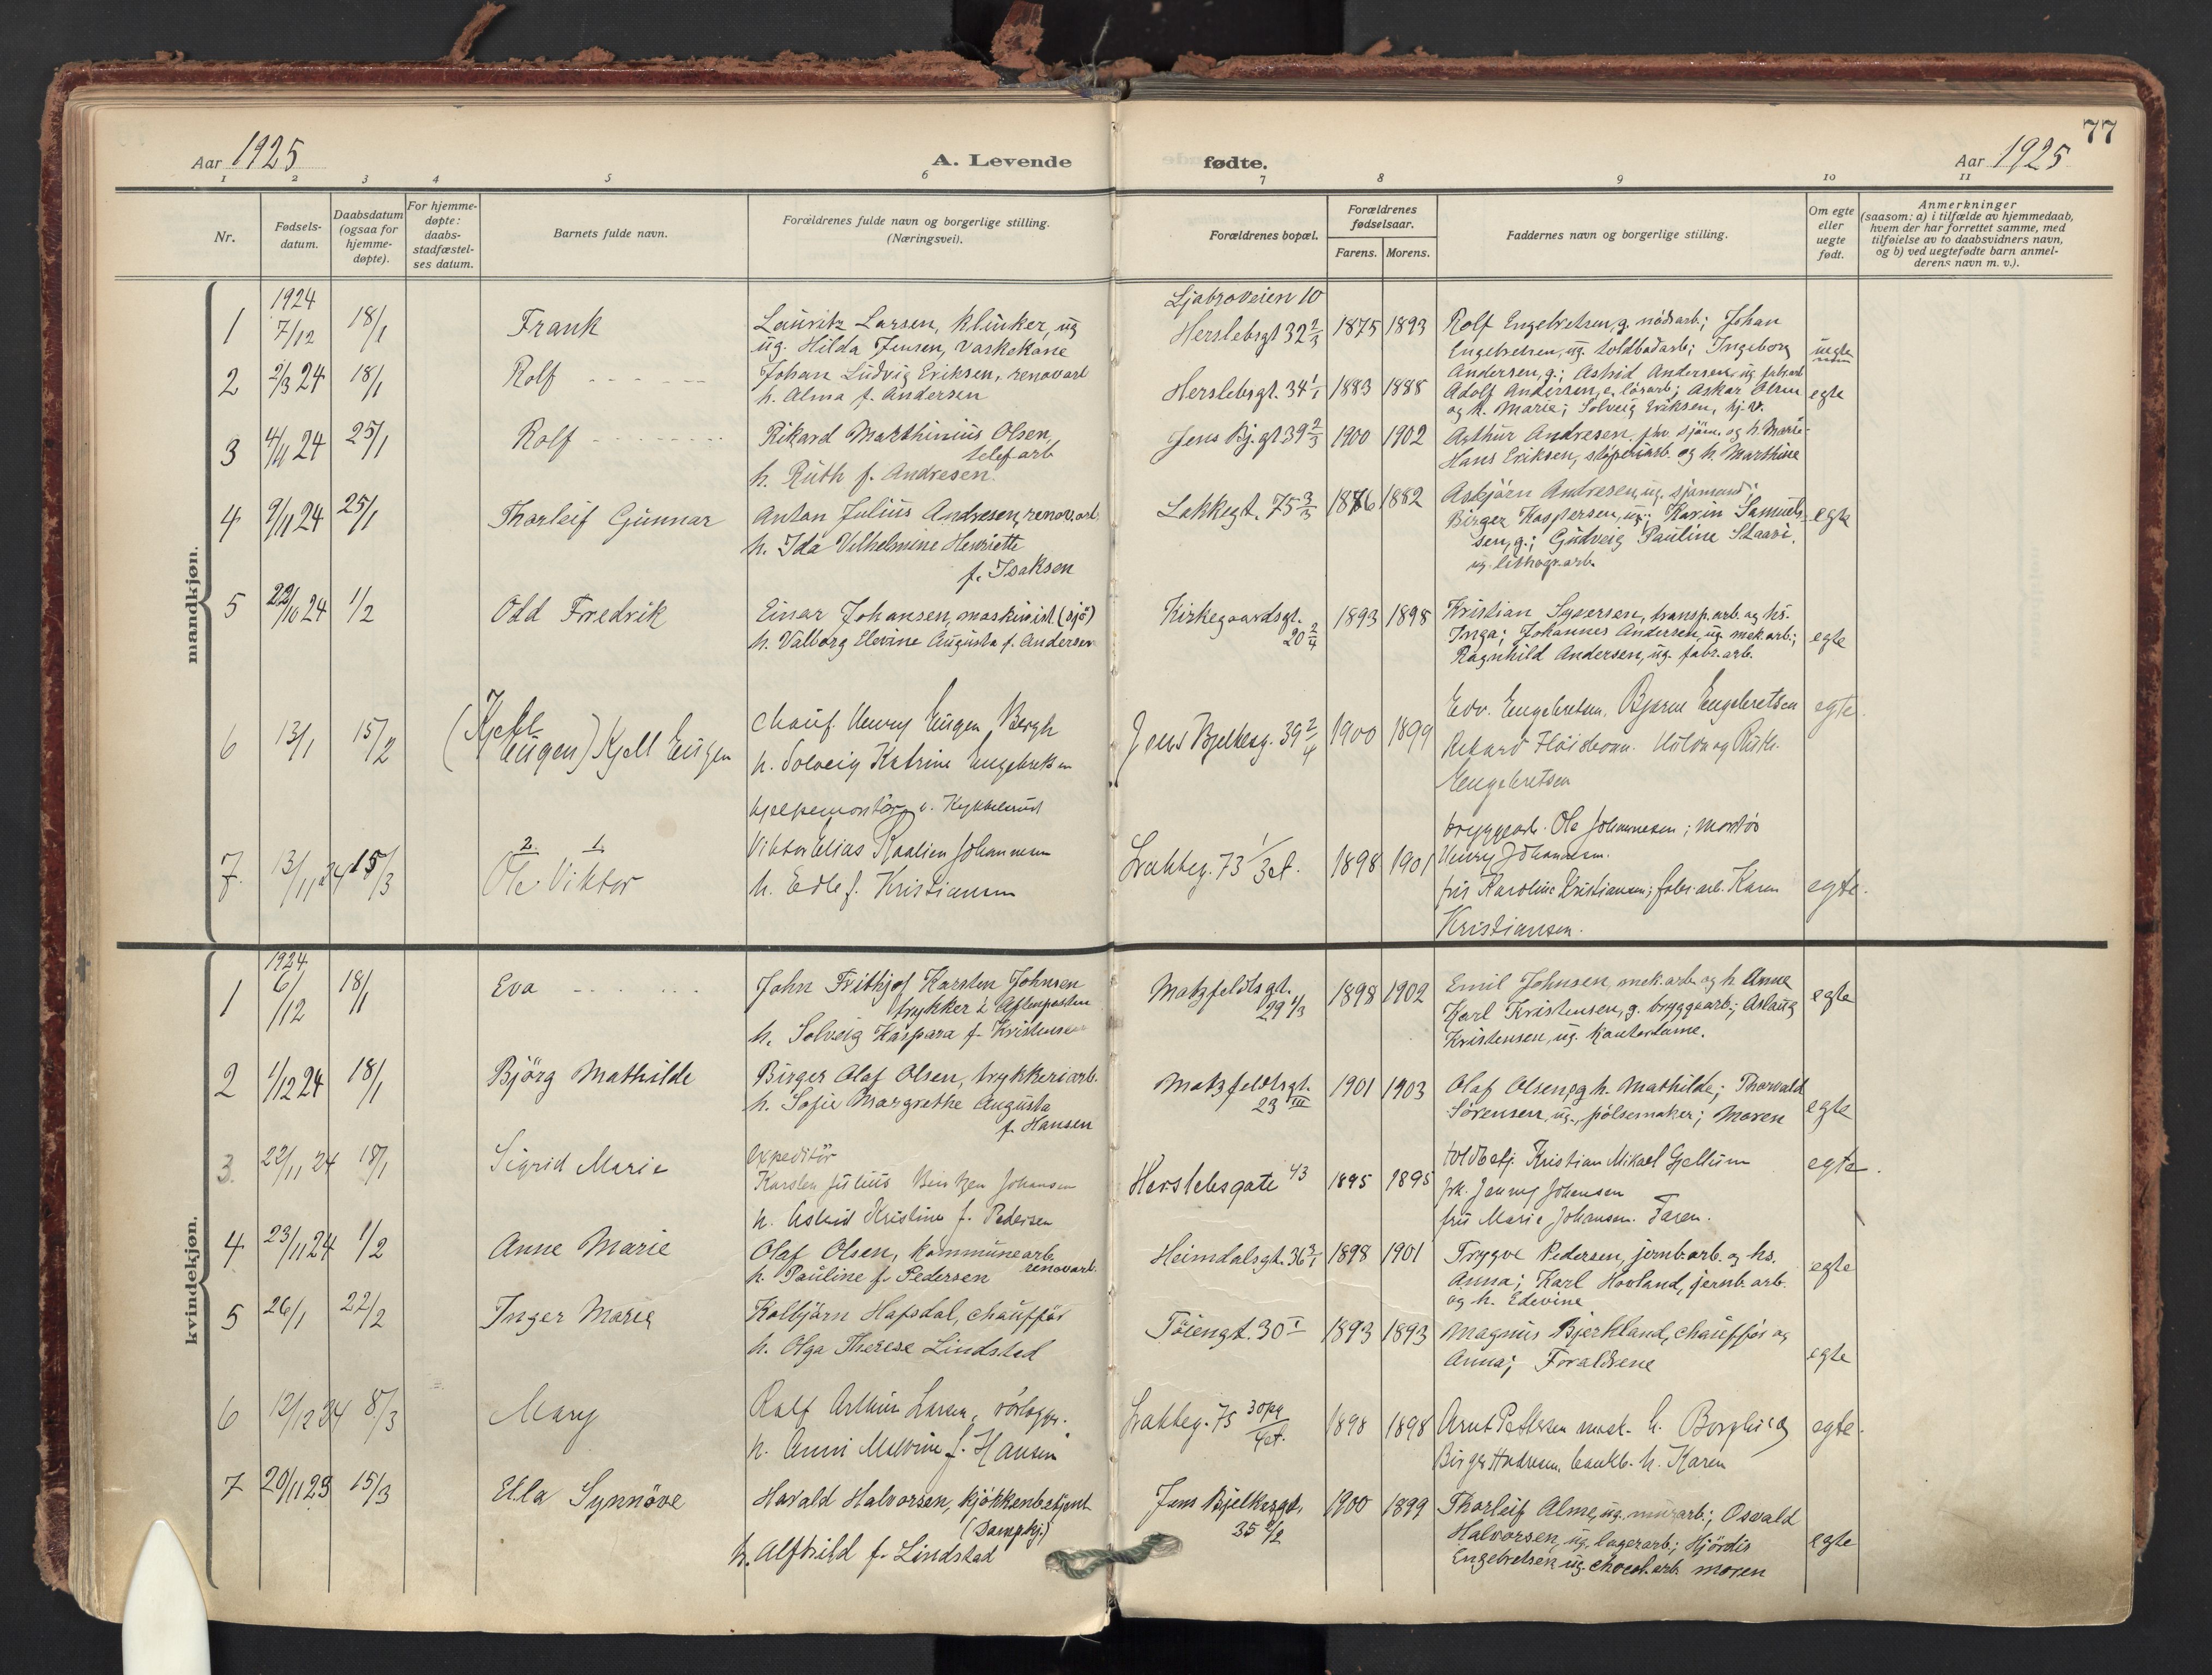 77
Aar 1925
A. Levende
fødte.
Aar 1925
1 2 3 4 5 6 7 8 9 10 11
Nr.
Fødsels-
datum.
Daabsdatum
(ogsaa for
hjemme-
døpte).
For hjemme-
døpte:
daabs-
stadfæstel-
ses datum.
Barnets fulde navn.
Forældrenes fulde navn og borgerlige stilling.
(Næringsvei).
Forældrenes bopæl.
Forældrenes
fødselsaar.
Farens. Morens.
Faddernes navn og borgerlige stilling.
Om egte
eller
uegte
født.
Anmerkninger
(saasom: a) i tilfælde av hjemmedaab,
hvem der har forrettet samme, med
tilføielse av to daabsvidners navn,
og b) ved uegtefødte barn anmel-
derens navn m. v.).
mandkjøn.
1924
1 7/12 18/1 Frank
Lauritz Larsen, klinker, ug
ug. Hilda Jensen, vaskekone
Ljabroveien 10
Herslebsgt 32 2/3 1875 1893
Rolf Engebretsen, g. nödsarb; Johan
Engebretsen, ug. toldbodarb; Ingeborg
Andersen, g.; Astrid Andersen, ug fabrarb
uegte
2 2/3 24 18/1 Rolf
Johan Ludvig Eriksen, renovarb
h. Alma f. Andersen
Herslebsgt. 34 1/1 1883 1888
Adolf Andersen, e. lösarb; Askar Olsen
og h. Marie; Solveig Eriksen, hj. v.
egte
3 4/11 24 25/1 Rolf
Rikard Marthinius Olsen,
telefarb
h. Ruth f. Andresen.
Jens Bj. gt 39 2/3 1900 1902
Arthur Andresen, sjöm. og h. Marie
Hans Eriksen, støperiarb. og h. Marthine
4 9/11 24 25/1 Thorleif Gunnar
Anton Julius Andresen, renov.arb.
h. Ida Vilhelmine Henriette
f. Isaksen
Lakkegt. 75 3/3 1876 1882
Asbjörn Andresen, ug. sjömand;
Birger Kaspersen, ug; Karin Samuel-
sen, g.; Gudveig Pauline Staavi,
ug. lithogr.arb.
egte
5 22/10 24 1/2 Odd Fredrik
Einar Johansen, maskinist. (sjö)
h. Valborg Elevine Augusta f. Andersen
Kirkegaardsgt.
20 2/4 1893 1898
Kristian Syversen, transp.arb. og hs.
Inga; Johannes Andersen, ug. mek arb.;
Ragnhild Andersen, ug. fabr.arb.
egte
6 13/1 15/2 (Kjell
Eugen) Kjell Eugen
Chauf. Henry Eugen Bergh
h. Solveig Katrine Engebretsen
Jens Bjelkesg. 39 2/4 1900 1899
Edv. Engebretsen. Bjarne Engebretsen
Rikard Höisbonn. Hulda og Ruth
Engebretsen
egte.
7. 13/11 24 15/3
2. 1.
Ole Viktor
hjelpemontör v. Kykkelsrud
Viktor Elias Raalien Johannesen
h. Edle f. Kristiansen
Lakkeg. 73 1/3 et. 1898 1901
bryggearb. Ole Johannesen; montör
Henry Johannesen.
frü Karoline Kristiansen; fabr. arb. Karen
Kristiansen.
egte.
kvindekjøn.
1924
1 6/12 18/1 Eva
John Frithjof Karsten Johnsen
trykker i Aftenposten
h. Solveig Kaspara f. Kristensen
Motzfeldtsgt.
29 4/3 1898 1902
Emil Johnsen, mek. arb. og h Anna
Karl Kristensen, g. bryggearb.; Aslaug
Kristensen, ug. kontordame.
egte
2 1/12 24 18/1 Björg Mathilde
Birger Olaf Olsen, trykkeriarb.
h. Sofie Margrethe Augusta
f. Hansen
Motzfeldtsgt.
23 III 1901 1903
Olaf Olsen og h. Mathilde; Thorvald
Sörensen, ug., pölsemaker; Moren
egte
3. 22/11 24 18/1 Sigrid Marie
expeditör
Karsten Julius Johansen
h. Astrid Kristine f. Pedersen
Herslebsgate 43 1895 1895
toldbetj. Kristian Mikael Gjellum
frk. Jenny Johansen
frü Marie Johansen. Faren.
egte.
4 23/11 24 1/2 Anne Marie
Olaf Olsen, kommunearb.
renovarb.
h. Pauline f. Pedersen
Heimdalsgt. 36 3/1 1898 1901
Trygve Pedersen, jernb. arb. og hs.
Anna; Karl Hovland, jernb. arb.
og h. Edevine
egte
5 26/1 22/2 Inger Marie
Kolbjörn Hafsdal, chaufför
h. Olga Therese Lindstad
Töiengt. 30 I 1893 1893
Magnus Bjerkland, chaufför og
Anna; Forældrene
egte
6 12/12 24 8/3 Mary
Rolf Arthur Larsen, rörlegger.
h. Anni Malvine f. Hansen
Lakkeg. 75 30pg/4et. 1898 1898
Arnt Pettersen mask. h. Borghild
Birger Andresen, bankb. h. Karen
egte.
7 20/11 23 15/3 Ella Synnöve
Harald Halvorsen, kjökkenbetjent
(Dampkj.)
h. Alfhild f. Lindstad
Jens Bjelkesgt.
35 4/2 1900 1899
Thorleif Alme, ug. murarb.; Osvald
Halvorsen, ug. lagerarb; Hjördis
Engebretsen ug. chocol.arb moren
egte